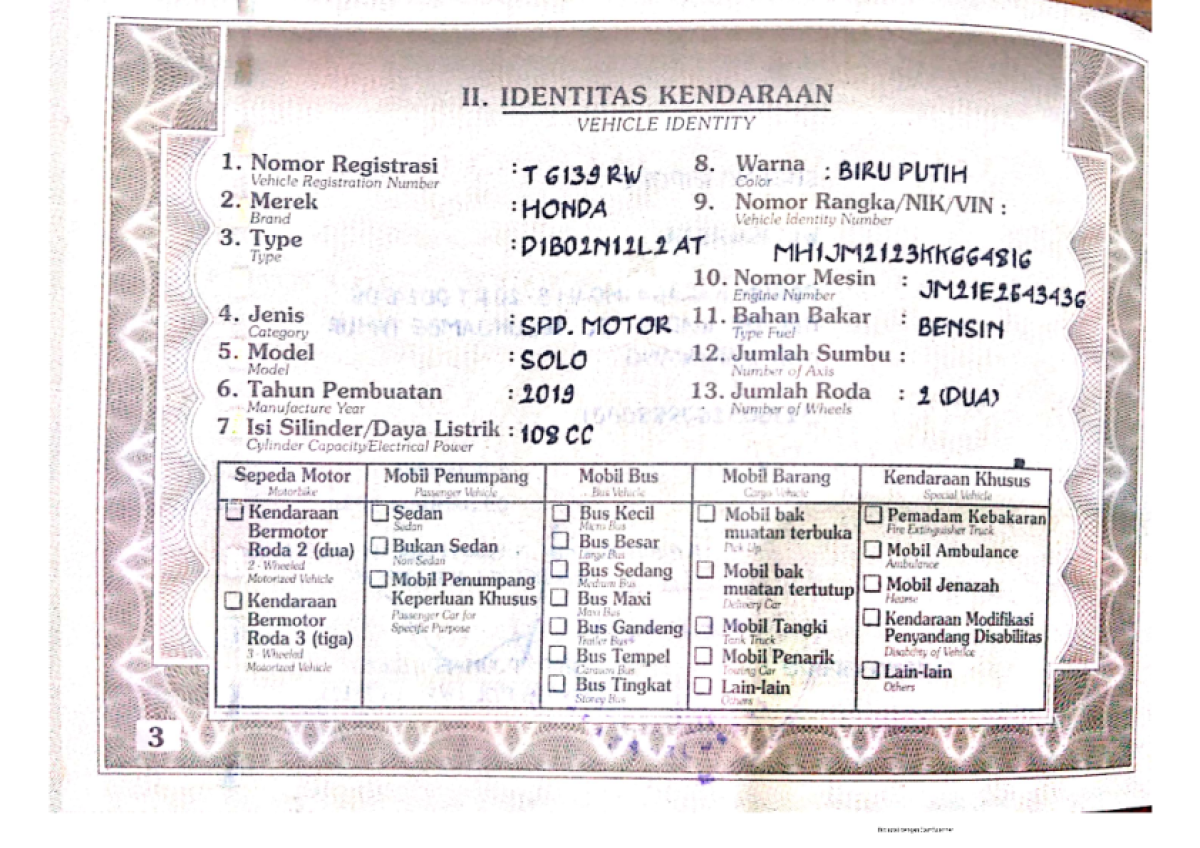 II. IDENTITAS KENDARAAN
VEHICLE IDENTITY
1. Nomor Registrasi : T 6139 RW
Vehicle Registration Number
2. Merek : HONDA
Brand
3. Type : D1B02N12L2 AT
Type
4. Jenis : SPD. MOTOR
Category
5. Model : SOLO
Model
6. Tahun Pembuatan : 2019
Manufacture Year
7. Isi Silinder/Daya Listrik : 108 CC
Cylinder Capacity/Electrical Power
8. Warna : BIRU PUTIH
Color
9. Nomor Rangka/NIK/VIN :
Vehicle Identity Number
MH1JM2123KK664816
10. Nomor Mesin : JM21E2643436
Engine Number
11. Bahan Bakar : BENSIN
Type Fuel
12. Jumlah Sumbu :
Number of Axis
13. Jumlah Roda : 2 (DUA)
Number of Wheels
Sepeda Motor
Motorbike
Kendaraan
Bermotor
Roda 2 (dua)
2 - Wheeled
Motorized Vehicle
Kendaraan
Bermotor
Roda 3 (tiga)
3 - Wheeled
Motorized Vehicle
Mobil Penumpang
Passenger Vehicle
Sedan
Sedan
Bukan Sedan
Non Sedan
Mobil Penumpang
Keperluan Khusus
Passenger Car for
Specific Purpose
Mobil Bus
Bus Vehicle
Bus Kecil
Micro Bus
Bus Besar
Large Bus
Bus Sedang
Medium Bus
Bus Maxi
Maxi Bus
Bus Gandeng
Trailer Bus
Bus Tempel
Caravan Bus
Bus Tingkat
Storey Bus
Mobil Barang
Cargo Vehicle
Mobil bak
muatan terbuka
Pick Up
Mobil bak
muatan tertutup
Delivery Car
Mobil Tangki
Tank Truck
Mobil Penarik
Towing Car
Lain-lain
Others
Kendaraan Khusus
Special Vehicle
Pemadam Kebakaran
Fire Extinguisher Truck
Mobil Ambulance
Ambulance
Mobil Jenazah
Hearse
Kendaraan Modifikasi
Penyandang Disabilitas
Disability of Vehilce
Lain-lain
Others
3